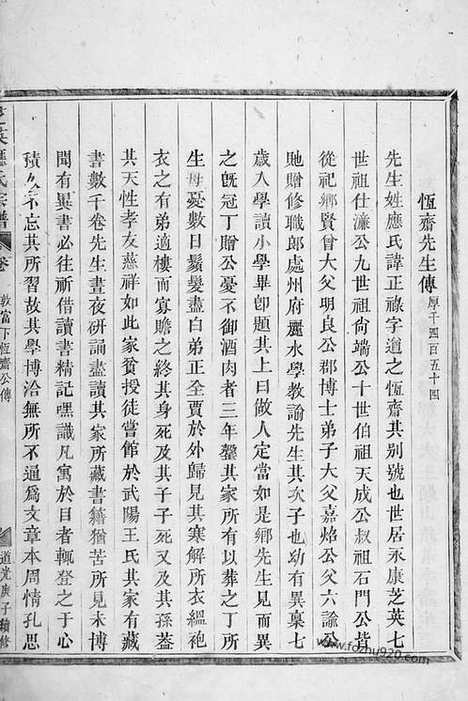 恆齋先生傳 厚千四百五十四
先生姓應氏諱正祿字道之恆齋其别號也世居永康芝英七
世祖仕濂公九世祖尚端公十世伯祖天成公叔祖石門公皆
從祀鄉賢曾大父明良公郡博士弟子大父嘉焰公父六諭公
貤贈修職郎處州府麗水學教諭先生其次子也幼有異稟七
歲入學讀小學畢其上曰做人定當如是鄉先生見而
之旣冠丁贈公憂不御酒肉者三年罄其家所有以葬之丁所
生母憂數日鬚髮盡白弟正全賈於外歸見其寒解所衣縕袍
衣之有弟適樓而寡贍之終其身死及其子子死又及其孫葢
其天性孝友慈祥如此家貧授徒嘗館於武陽王氏其家有藏
書數千卷先生晝夜研誦盡讀其家所藏書籍猶苦所見未博
聞有異書必往祈借讀書精記嘿識凡寓於目者輒登之于心
積久不忘其所習故其學博洽無所不通爲文章本周情孔思
芝英應氏宗譜 卷 敦當下恆齋公傳 道光庚子續修
www.fozhu920.com